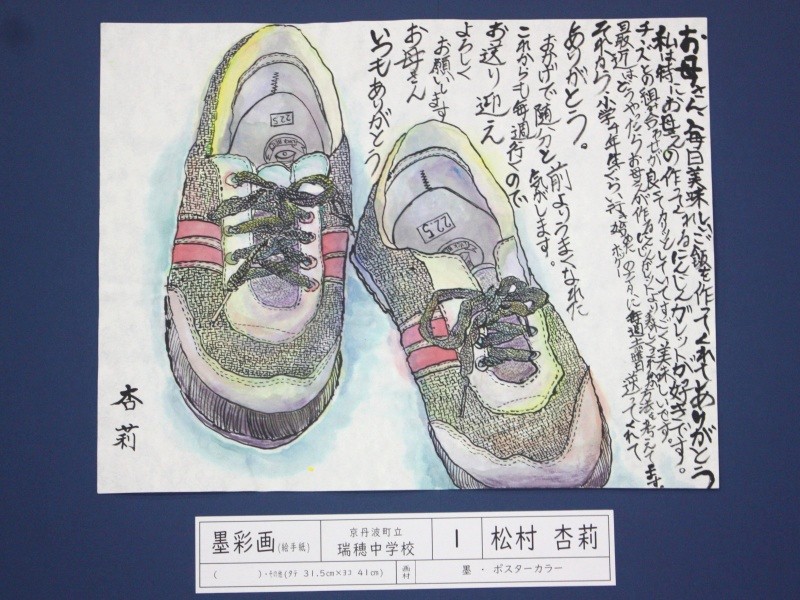 お母さん、毎日美味しいご飯を作ってくれてありがとう
私は特にお母さんの作ってくれるにんじんガレットが好きです。
チーズとの組み合わせが良くてカリッとしていてすごく美味しいです。
最近はどうやったらお母さんが作るにんじんガレットより
それから、小学4年生ぐらいから
毎週土曜日送ってくれて
ありがとう。
おかげで随分と前よりうまくなれた
気がします。
これからも毎週行くので
お送り迎え
よろしく
お願いします
お母さん
いつもありがとう
22.5
22.5
杏莉
墨彩画(絵手紙)
京丹波町立
瑞穂中学校
1
松村 杏莉
( )・その他(タテ 31.5cm×ヨコ 41cm)
画材
墨 ・ ポスターカラー